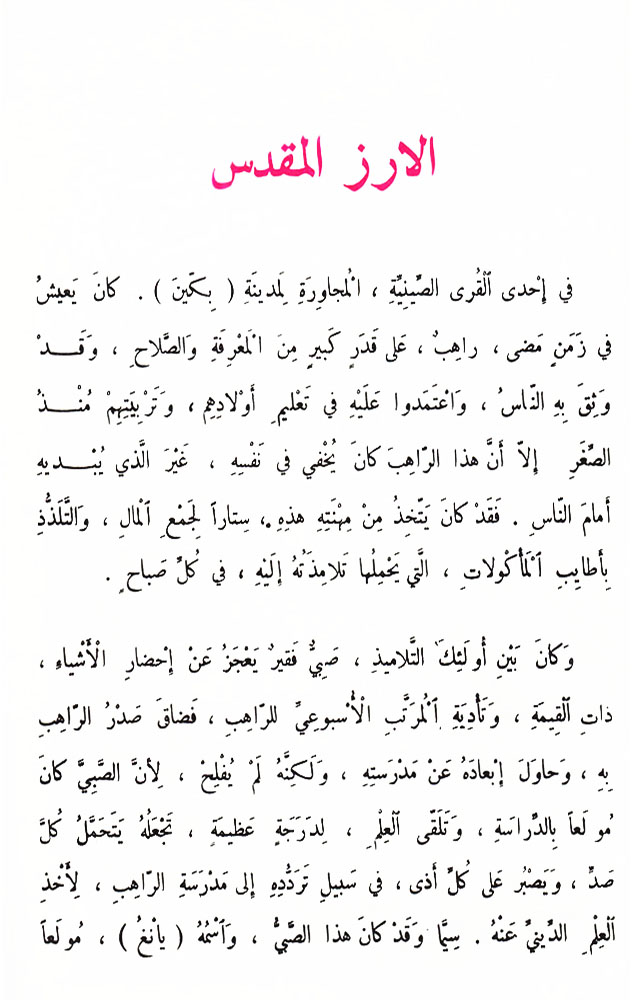 الارز المقدس
في إِحْدى ٱلْقُرى الصِّينِيَّةِ ، الْمجاوِرَةِ لِمدينَةِ ( بِكّينَ ) . كانَ يَعيشُ
في زَمَنٍ مَضى ، راهِبٌ ، عَلى قَدَرٍ كَبيرٍ مِنَ الْمَعْرِفَةِ وَالصَّلاحِ ، وَقَــدْ
وَثِقَ بِهِ النّاسُ ، وَاعْتَمَدوا عَلَيْهِ في تَعْليمِ أَوْلادِهِم ، وَتَرْبِيَتِهِمْ مُنْــذُ
الصِّغَرِ إِلاّ أَنَّ هذا الرّاهِبَ كانَ يُخْفي في نَفْسِهِ ، غَيْرَ الَّذي يُبْــديهِ
أَمامَ النّاسِ . فَقَدْ كانَ يَتَّخِذُ مِنْ مِهْنَتِهِ هذِهِ ، سِتاراً لِجَمْعِ ٱلْمالِ ، وَالتَّلَذُّذِ
بِأَطايِبِ ٱلْمَأْكولاتِ ، الَّتي يَحْمِلُها تَلامِذَتُهُ إِلَيْهِ ، في كُلِّ صَباحٍ .
وَكانَ بَيْنِ أُولَئِكَ التَّلاميذِ ، صَبِيٌّ فَقيرٌ يَعْجَزُ عَنْ إِحْضارِ الْأَشْياءِ ،
ذاتِ ٱلْقيمَةِ ، وَتَأْدِيَةِ ٱلْمُرَتَّبِ الْأُسْبوعِيِّ للرّاهِبِ ، فَضاقَ صَدْرُ الرّاهِبِ
بِهِ ، وَحاوَلَ إِبْعادَهُ عَنْ مَدْرَسَتِهِ ، وَلَكِنَّهُ لَمْ يُفْلِحْ ، لِأَنَّ الصَّبِيَّ كانَ
مُولَعاً بِالدِّراسَةِ ، وَتَلَقّى ٱلْعِلْمِ ، لِدَرَجَةٍ عَظيمَةٍ ، تَجْعَلُهُ يَتَحَمَّلُ كُلَّ
صَدٍّ ، وَيَصْبُر عَلى كُلِّ أَذى ، في سَبيلِ تَرَدُّدِهِ إِلى مَدْرَسَةِ الرّاهِبِ ، لِأَخْذِ
ٱلْعِلْمِ الدِّينيِّ عَنْهُ . سِيَّما وَقَدْ كانَ هذا الصَّبيُّ ، وَٱسْمُهُ ( يانْغُ ) ، مُولَعاً